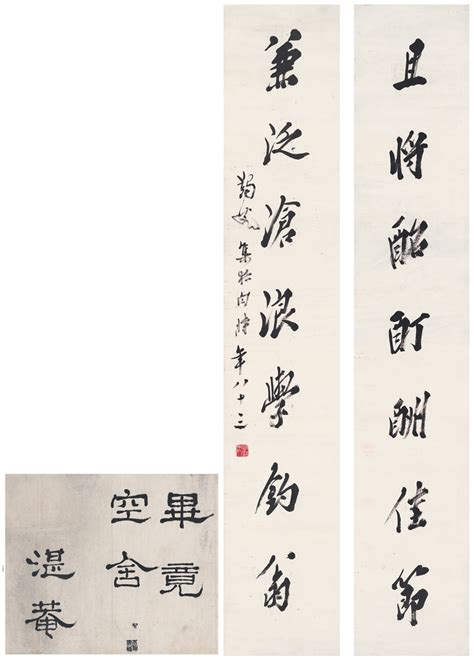 且將酩酊酬佳節
兼泛滄浪學釣翁
蠲叟集 年八十三
畢竟
空舍
湛菴